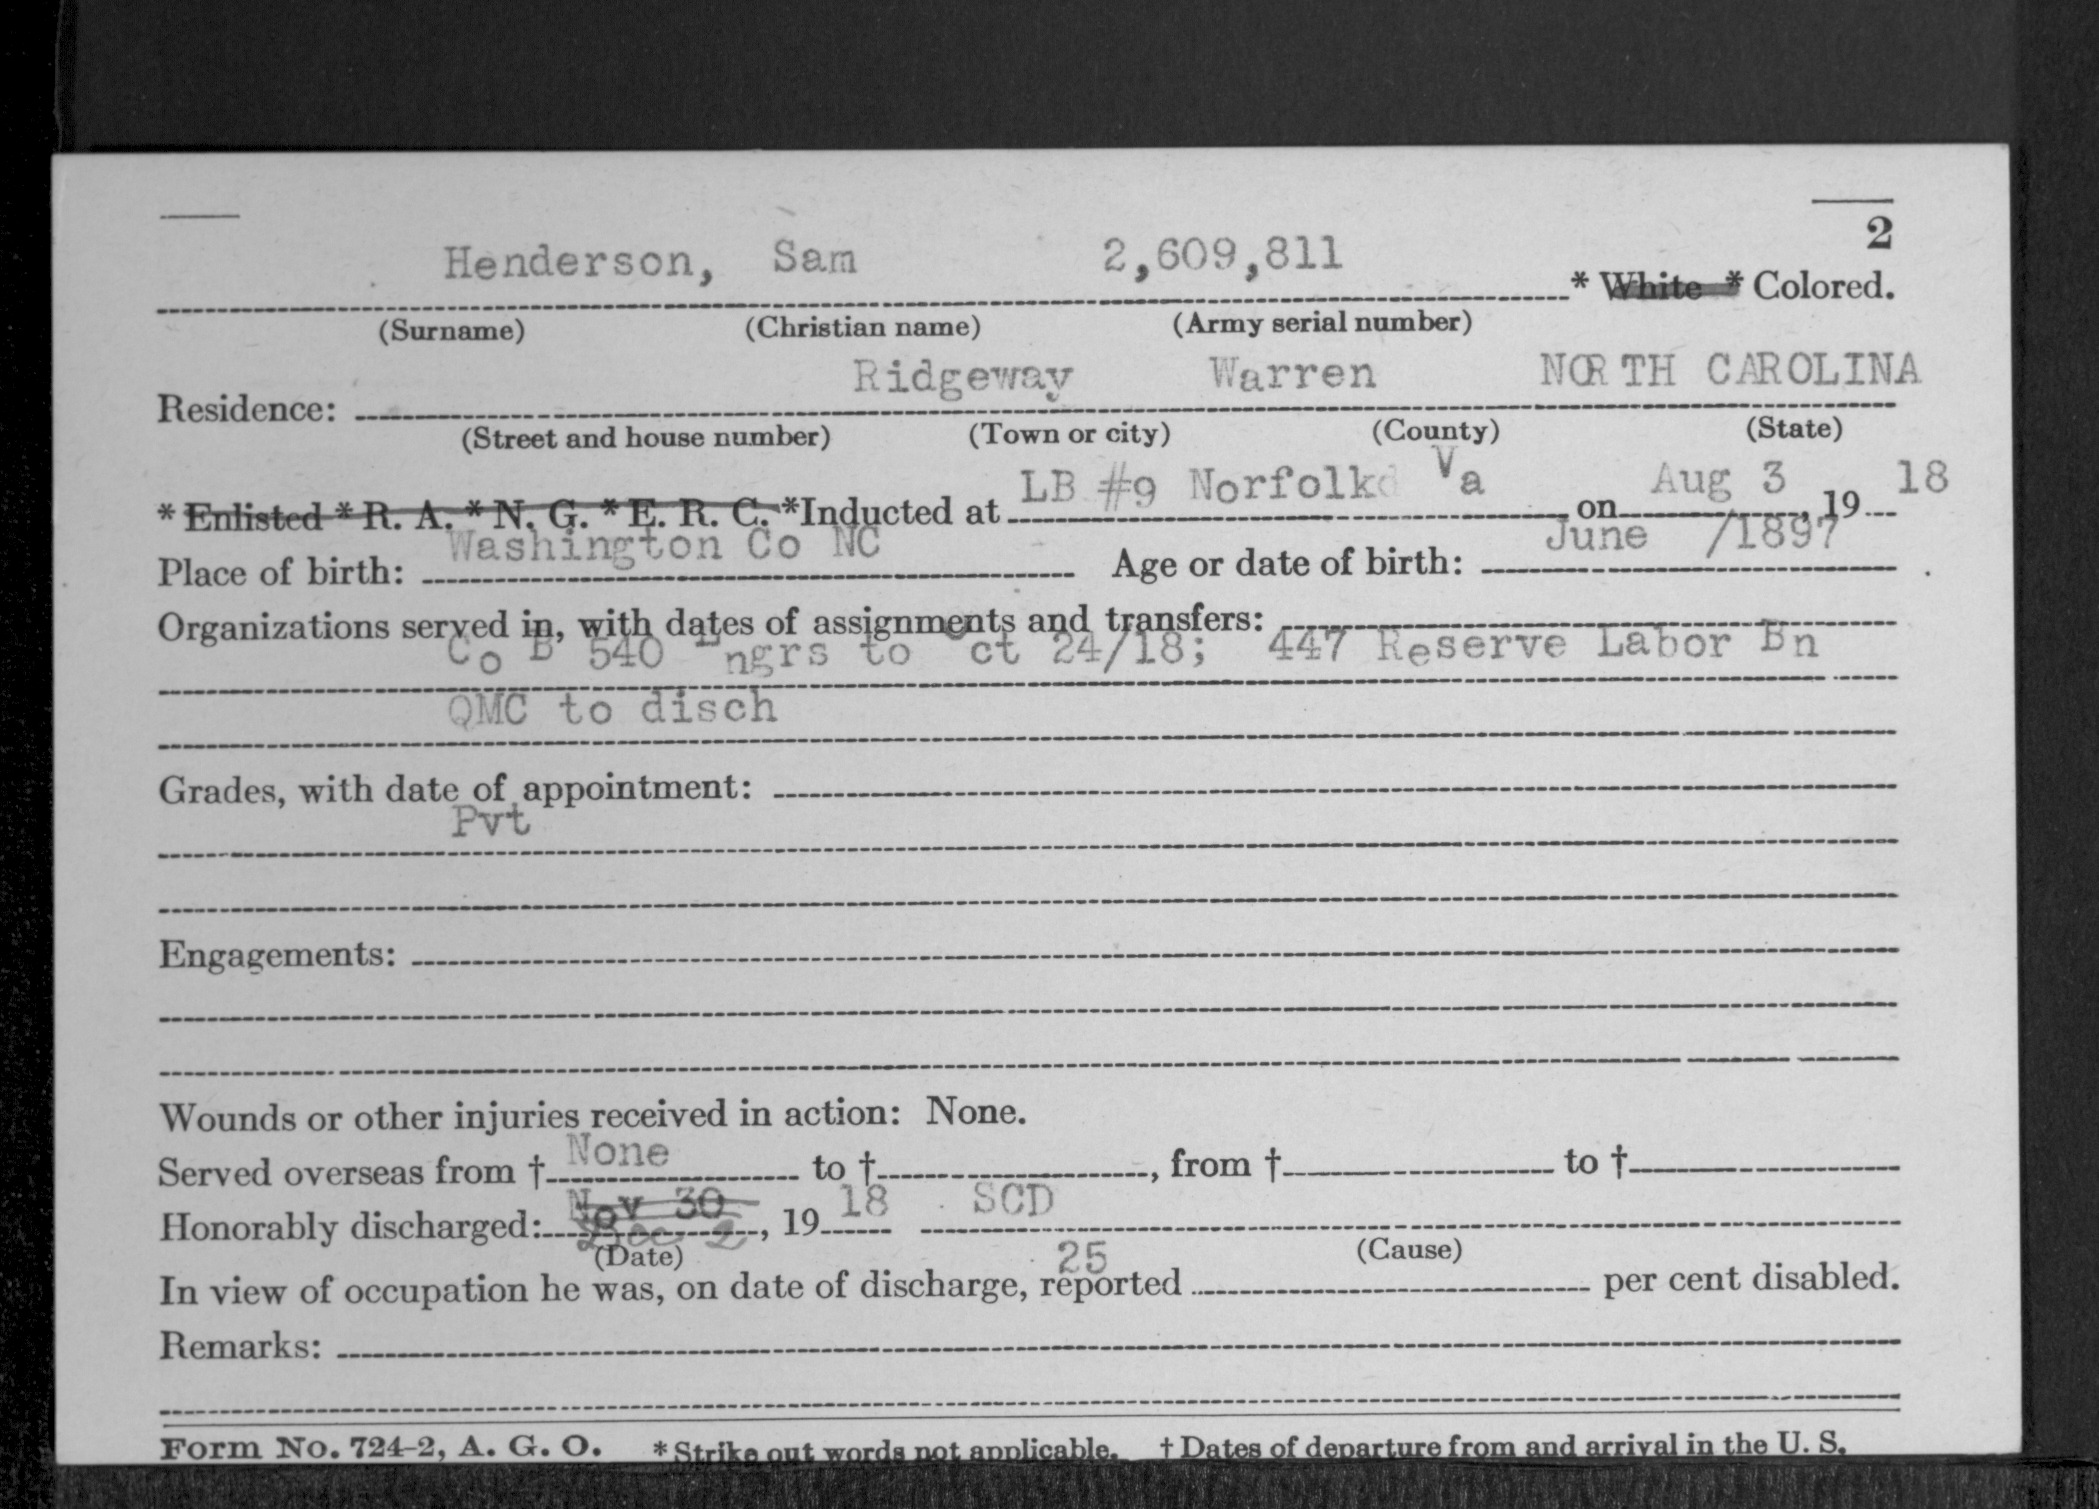 2
Henderson, Sam 2,609,811 * White * Colored.
(Surname) (Christian name) (Army serial number)
Residence: Ridgeway Warren NORTH CAROLINA
(Street and house number) (Town or city) (County) (State)
* Enlisted * R. A. * N. G. * E. R. C. *Inducted at LB #9 Norfolk Va on Aug 3, 19 18
Place of birth: Washington Co NC Age or date of birth: June /1897
Organizations served in, with dates of assignments and transfers:
Co B 540 Engrs to Oct 24/18; 447 Reserve Labor Bn
QMC to disch
Grades, with date of appointment:
Pvt
Engagements:
Wounds or other injuries received in action: None.
Served overseas from † None to †, from † to †
Honorably discharged: Nov 30 Dec 2, 19 18 SCD
(Date) (Cause)
In view of occupation he was, on date of discharge, reported 25 per cent disabled.
Remarks:
Form No. 724-2, A. G. O. * Strike out words not applicable. † Dates of departure from and arrival in the U. S.